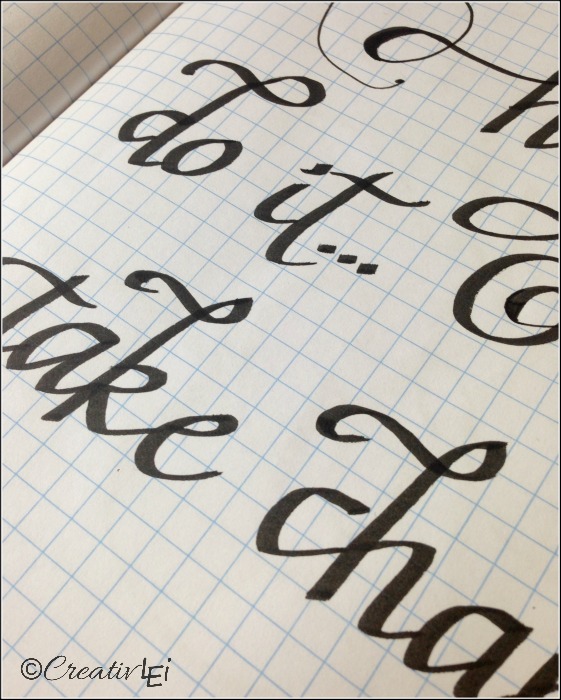 do it...
take chan
©CreativLEi